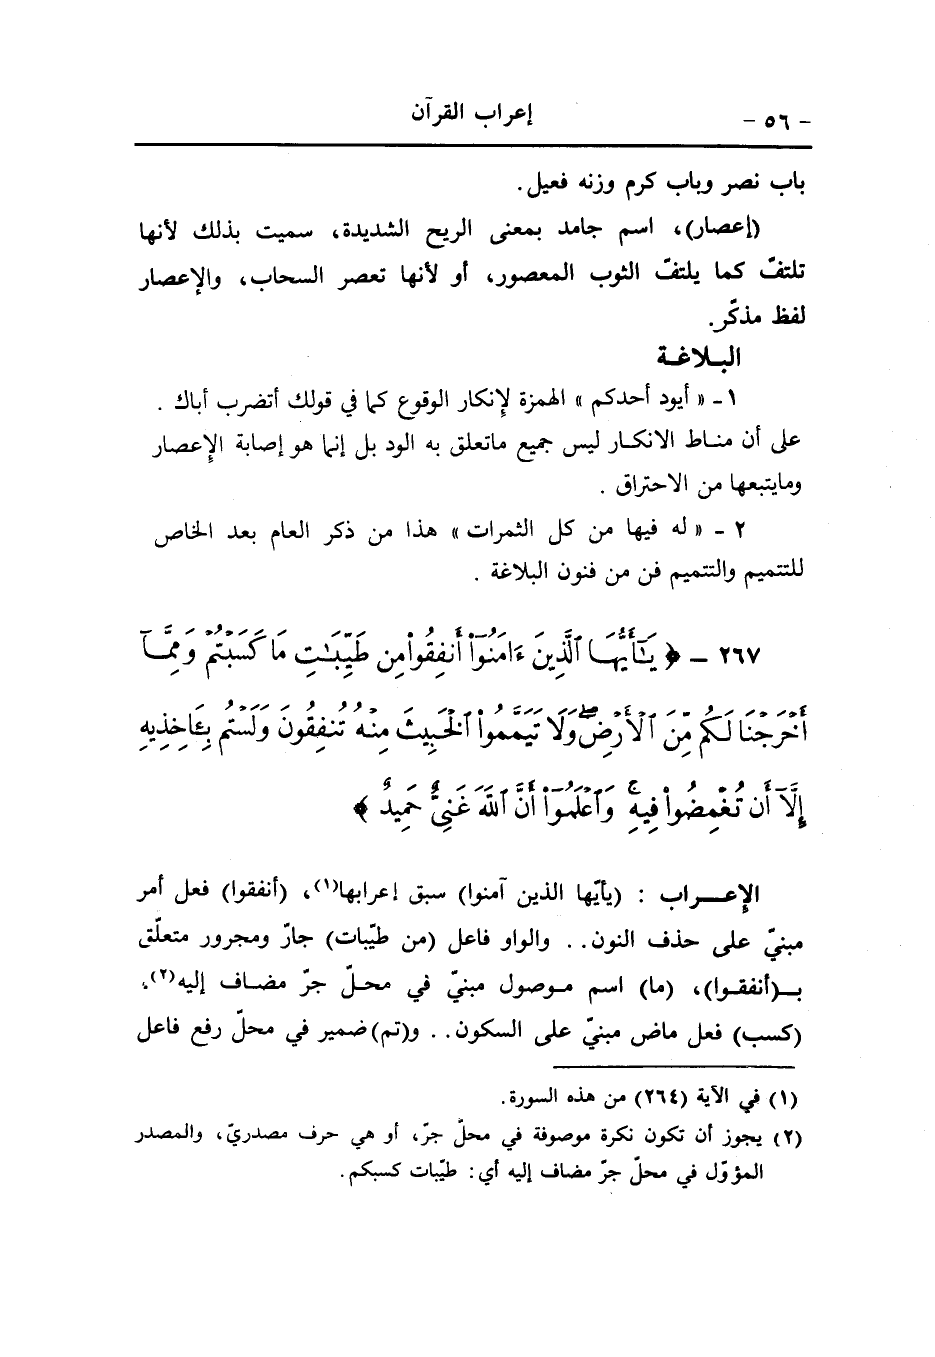 - ٥٦ - إعراب القرآن
باب نصر وباب كرم وزنه فعيل.
(إعصار)، اسم جامد بمعنى الريح الشديدة، سميت بذلك لأنها
تلتفّ كما يلتفّ الثوب المعصور، أو لأنها تعصر السحاب، والإعصار
لفظ مذكّر.
البـلاغـة
١- « أيود أحدكم » الهمزة لإنكار الوقوع كما في قولك أتضرب أباك .
على أن مناط الانكار ليس جميع ماتعلق به الود بل إنما هو إصابة الإعصار
ومايتبعها من الاحتراق .
٢ - « له فيها من كل الثمرات » هذا من ذكر العام بعد الخاص
للتتميم والتتميم فن من فنون البلاغة .
٢٦٧ - ﴿ يَـٰٓأَيُّهَا ٱلَّذِينَ ءَامَنُوٓا۟ أَنفِقُوا۟ مِن طَيِّبَـٰتِ مَا كَسَبْتُمْ وَمِمَّآ
أَخْرَجْنَا لَكُم مِّنَ ٱلْأَرْضِ ۖ وَلَا تَيَمَّمُوا۟ ٱلْخَبِيثَ مِنْهُ تُنفِقُونَ وَلَسْتُم بِـَٔاخِذِيهِ
إِلَّآ أَن تُغْمِضُوا۟ فِيهِ ۚ وَٱعْلَمُوٓا۟ أَنَّ ٱللَّهَ غَنِىٌّ حَمِيدٌ ﴾
الإعـــراب : (يأيّها الذين آمنوا) سبق إعرابها(١)، (أنفقوا) فعل أمر
مبنيّ على حذف النون.. والواو فاعل (من طيّبات) جارّ ومجرور متعلّق
بـ(أنفقـوا)، (ما) اسم مـوصول مبنيّ في محـلّ جرّ مضـاف إليه(٢)،
(كسب) فعل ماض مبنيّ على السكون.. و(تم) ضمير في محلّ رفع فاعل
(١) في الآية (٢٦٤) من هذه السورة.
(٢) يجوز أن تكون نكرة موصوفة في محلّ جرّ، أو هي حرف مصدريّ، والمصدر
المؤوّل في محلّ جرّ مضاف إليه أي: طيّبات كسبكم.